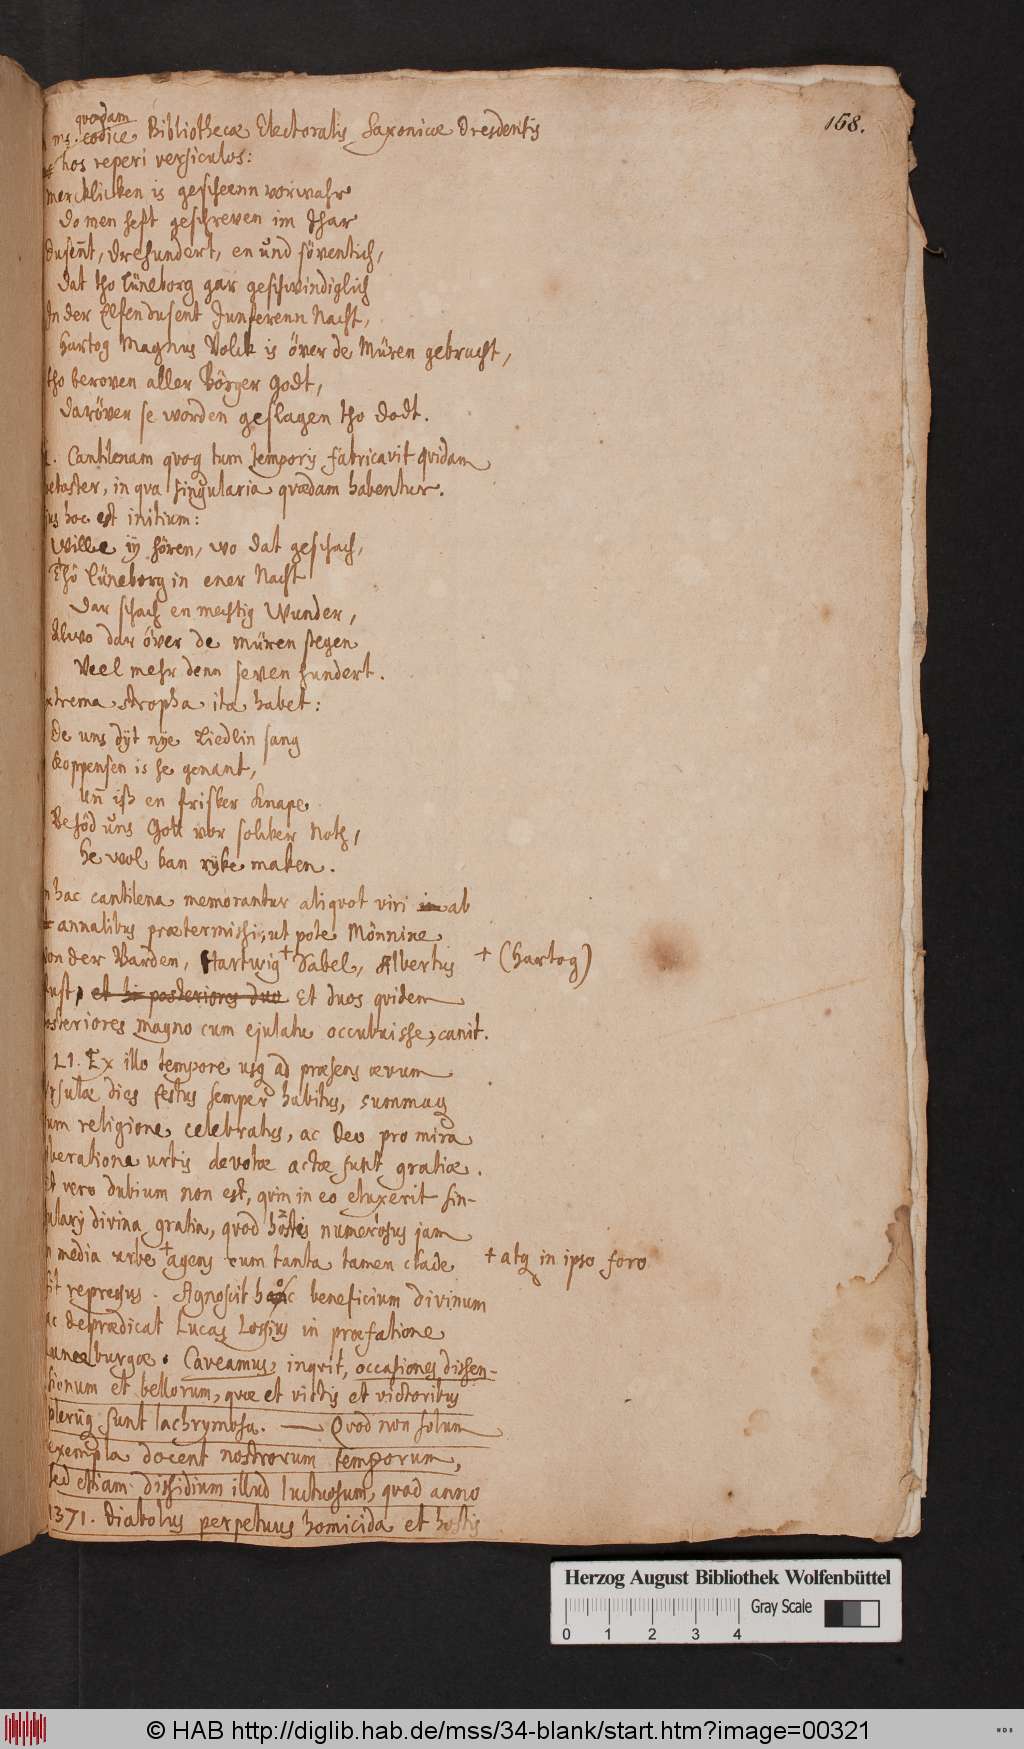 168.
quodam
ms. codice Bibliothecæ Electoralis Saxonicæ Dresdensis
hos reperi versiculos:
mercklicken is gescheenn vorwahr
do men heft geschreven im Jhar
dusent, drehundert, en und söventich,
dat tho Lüneborg gar geschwindiglich
In der Elfendusent Junferenn Nacht,
Hartog Magnus Volck is över de Müren gebracht,
tho beroven aller Börger Godt,
daröver se worden geslagen tho dodt.
Cantilenam quoq tum temporis fabricavit quidam
etaster, in qva singularia quædam habentur.
jus hoc est initium:
Wille jÿ hören, wo dat geschach,
Thô Lüneborg in ener Nacht
Dar schach en mechtig Wunder,
Alwo dar över de müren stegen
Veel mehr denn seven hundert.
xtrema stropha ita habet:
De uns dÿt nÿe Liedlin sang
Koppensen is he genant,
Un̄ iß en frisker Knape
Behöd uns Gott vor solcker Noth,
He wol kan rÿke maken.
n hac cantilena memorantur aliquot viri in ab
annalibus prætermissi, ut pote Mönnine
von der Barden, Hartwig + Sabel, Albertus
+ (Hartog)
ust, et hi posteriores duo Et duos quidem
osteriores magno cum ejulatu occubuisse, canit.
21. Ex illo tempore usq ad præsens ævum
rsulæ dies festus semper habitus, summaq
um religione celebratus, ac Deo pro mira
iberatione urbis devotæ actæ sunt gratiæ.
Et vero dubium non est, quin in eo eluxerit sin-
ulari divina gratia, quod hostis numerosus jam
n media urbe + agens cum tanta tamen clade
+ atq in ipso foro
sit repressus. Agnoscit hoc beneficium divinum
ac deprædicat Lucas Lossius in præfatione
Luneburgæ. Caveamus, inqvit, occasiones dissen-
sionum et bellorum, quæ et victis et victoribus
plerūq sunt lachrymosa. — Qvod non solum
exempla docent nostrorum temporum,
sed etiam dissidium illud luctuosum, quod anno
1371. Diabolus perpetuus homicida et hostis
Herzog August Bibliothek Wolfenbüttel
Gray Scale
0 1 2 3 4
© HAB http://diglib.hab.de/mss/34-blank/start.htm?image=00321